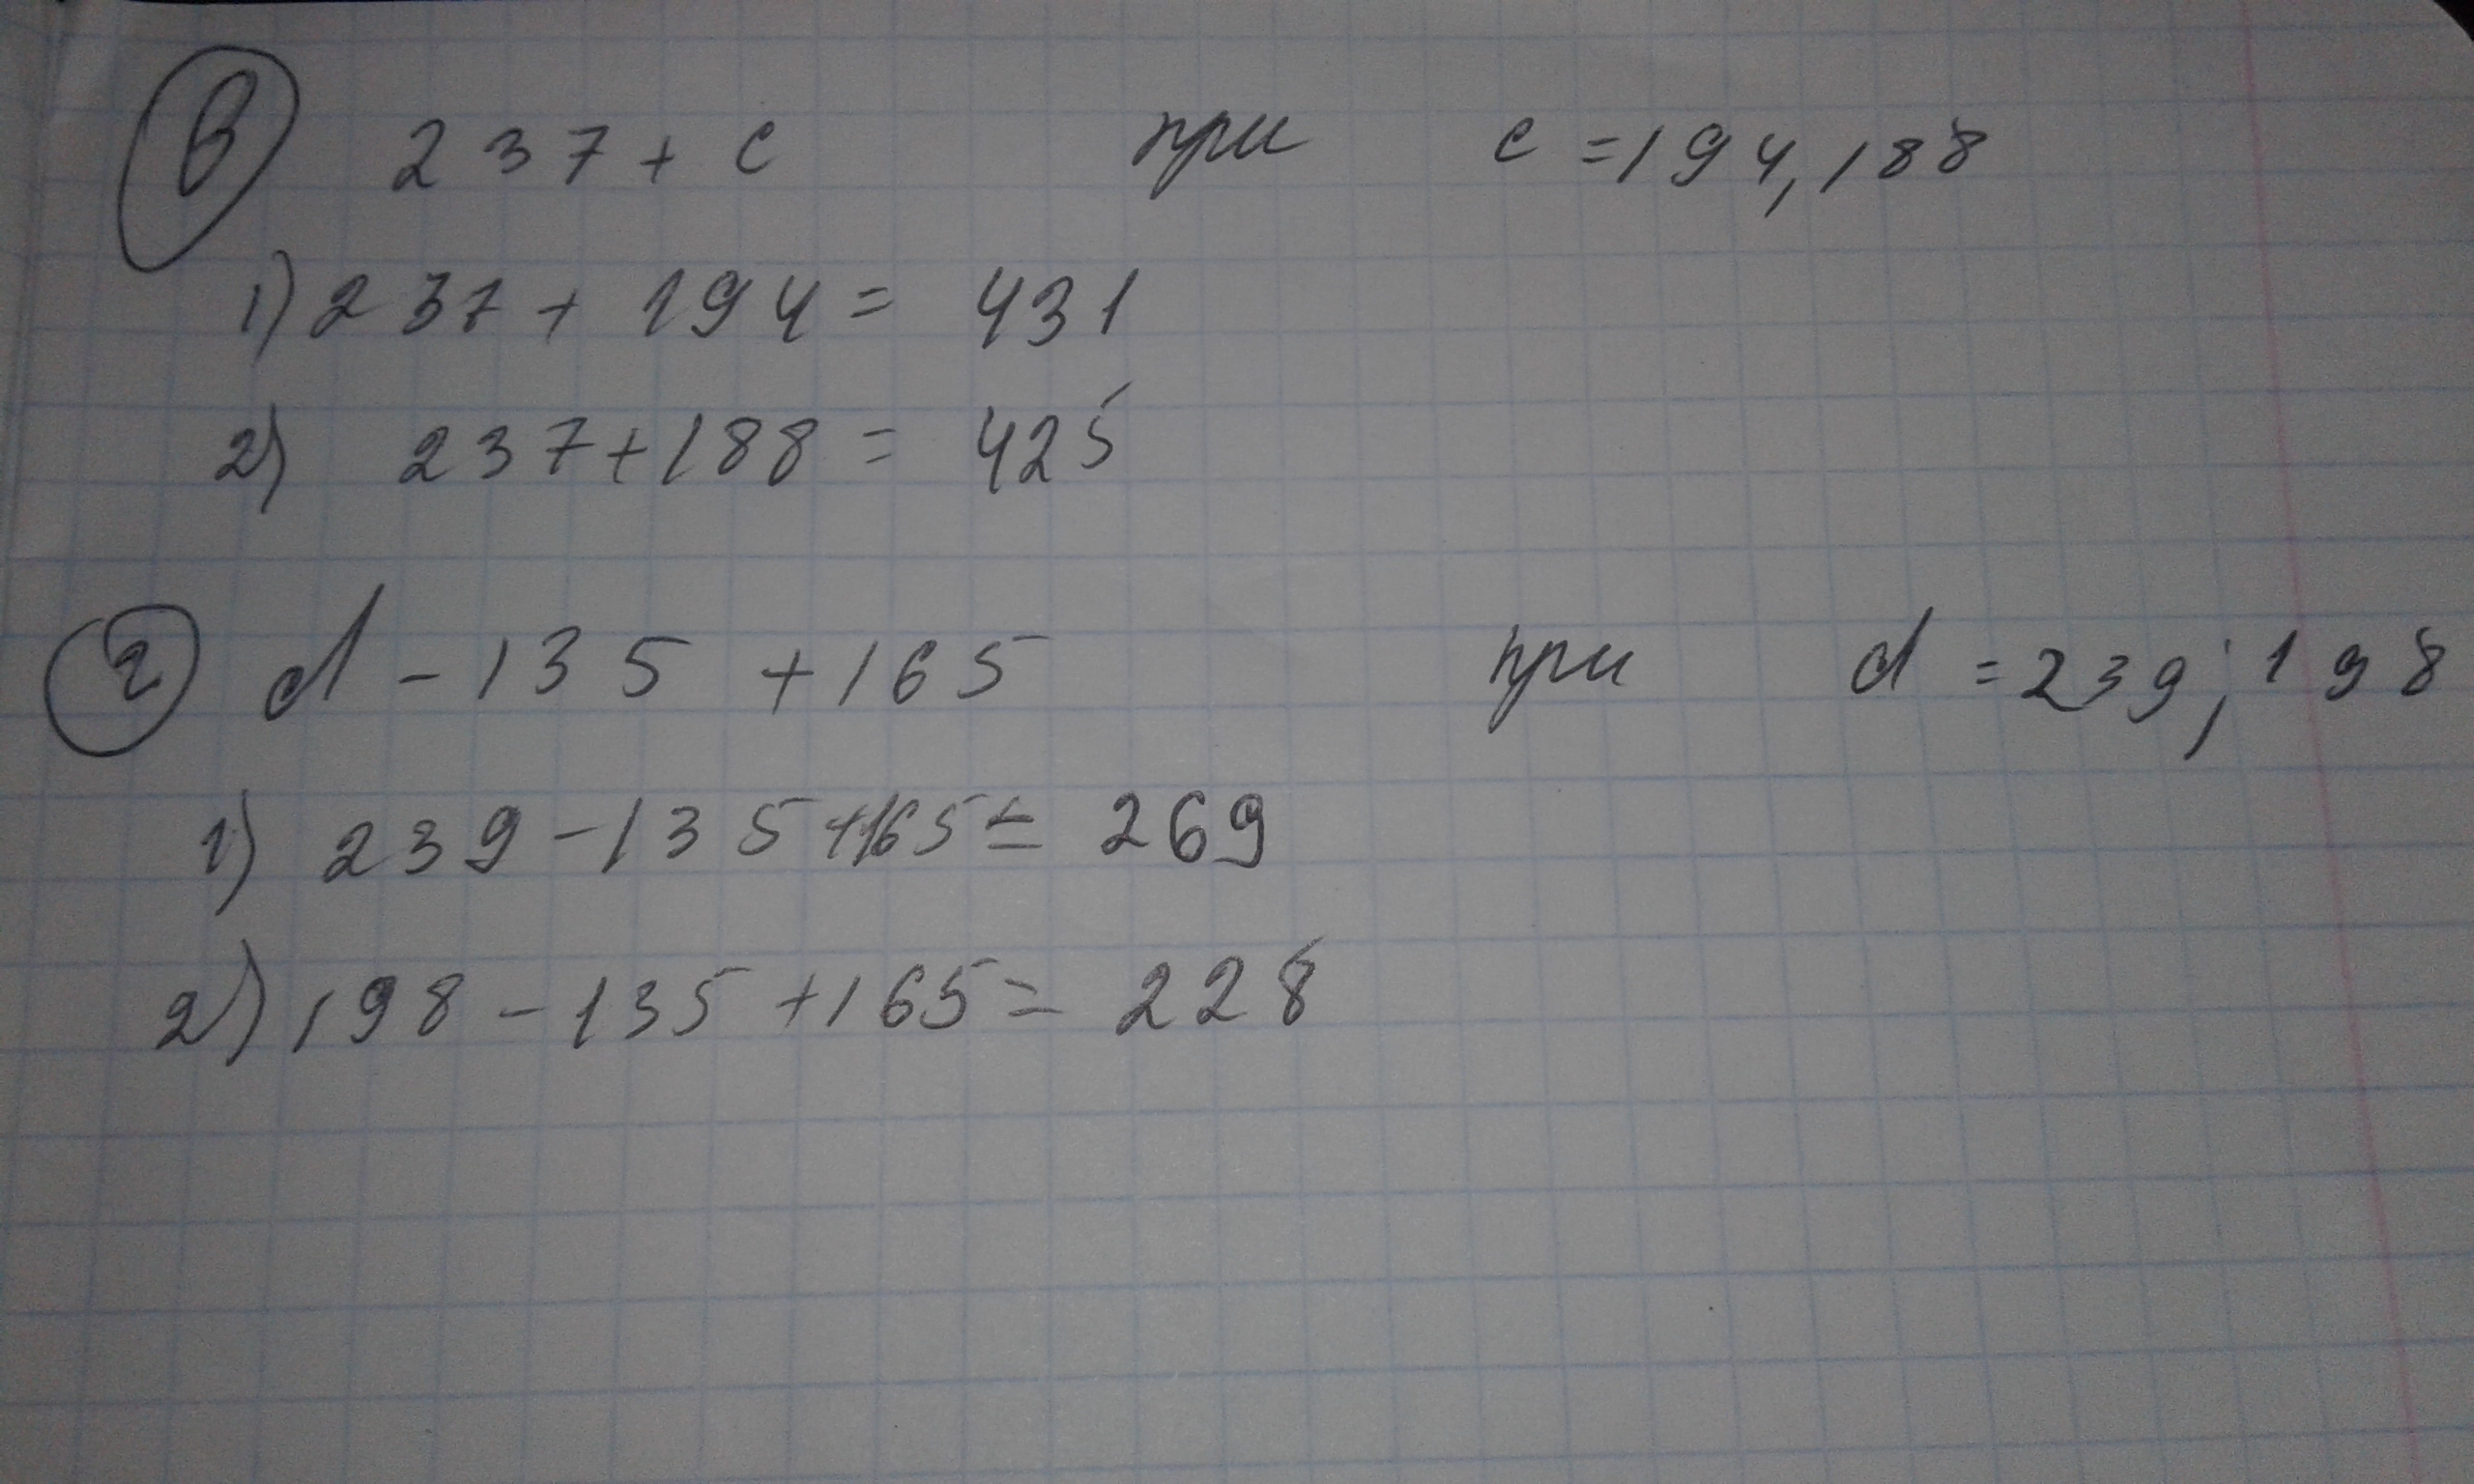 в 237 + c при c = 194, 188
1) 237 + 194 = 431
2) 237 + 188 = 425
г d - 135 + 165 при d = 239; 198
1) 239 - 135 + 165 = 269
2) 198 - 135 + 165 = 228